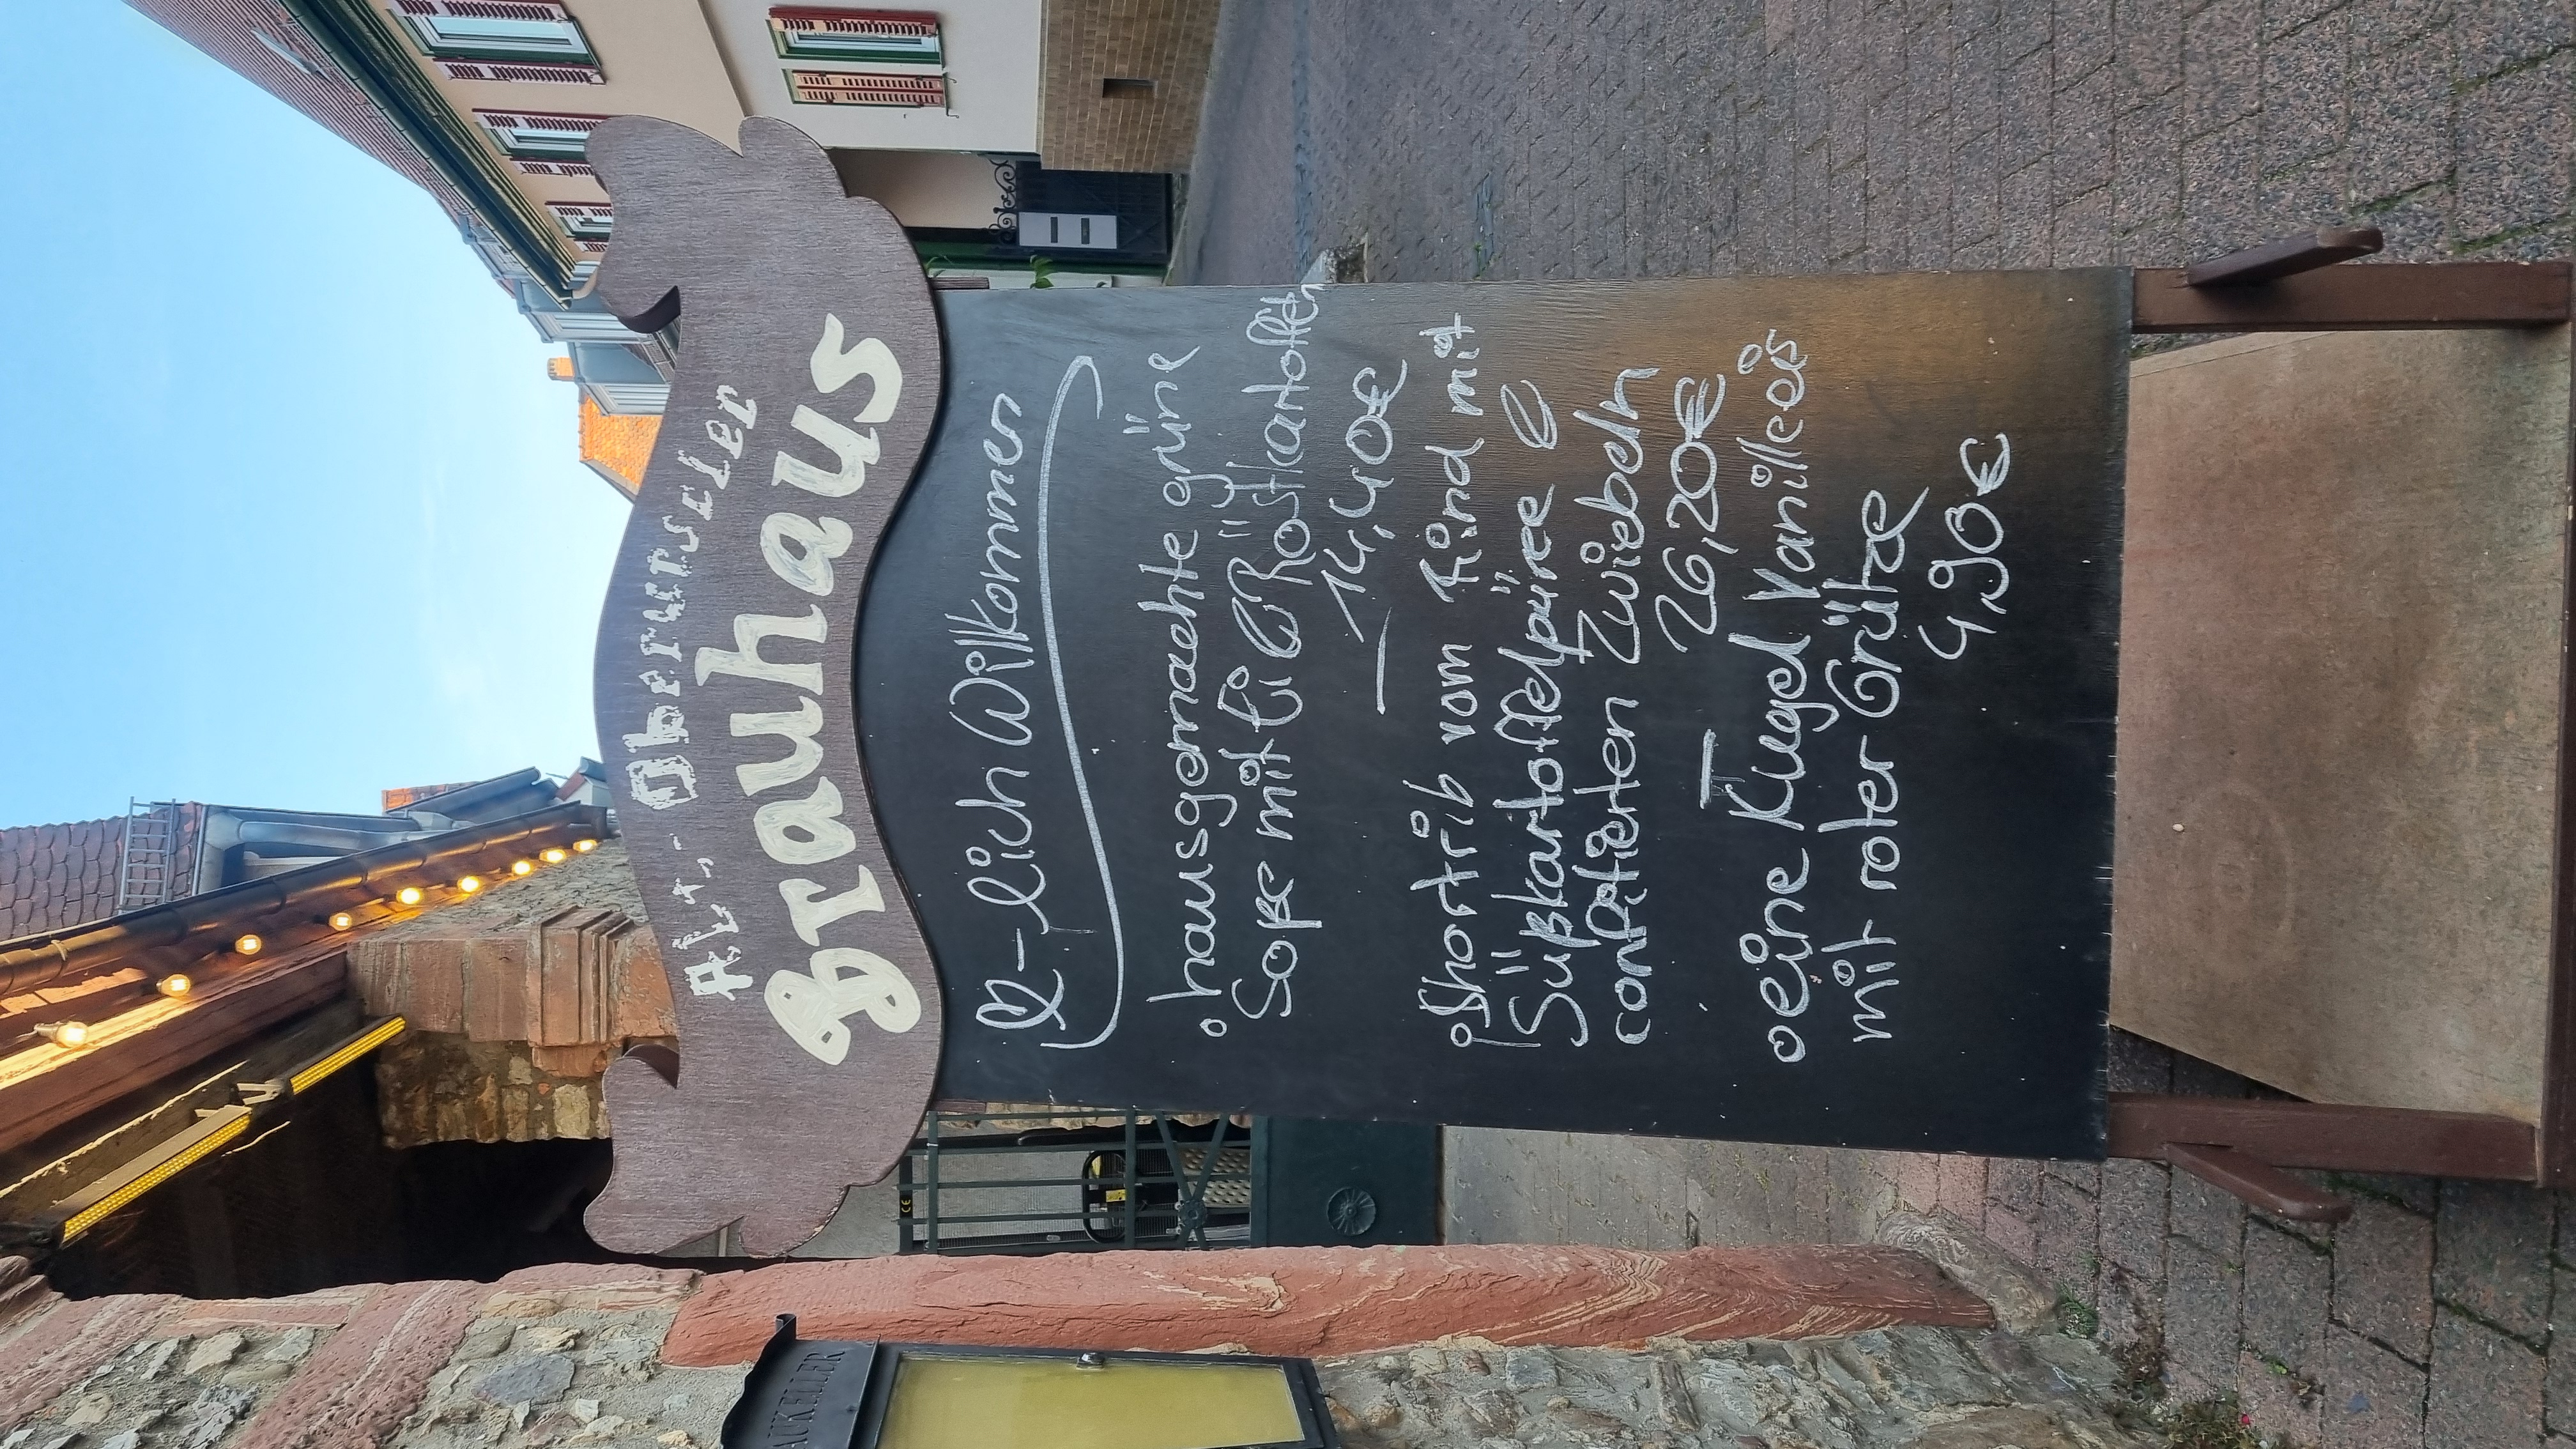 Alt-Oberurseler
Brauhaus
♡-lich Wilkommen
° hausgemachte grüne
Soße mit Ei & Röstkartoffen
14,40€
° Shortrib vom Rind mit
Süßkartoffelpüree &
confierten Zwiebeln
26,20€
° eine Kugel Vanilleeis
mit roter Grütze
4,90€
AUKELLER
CE